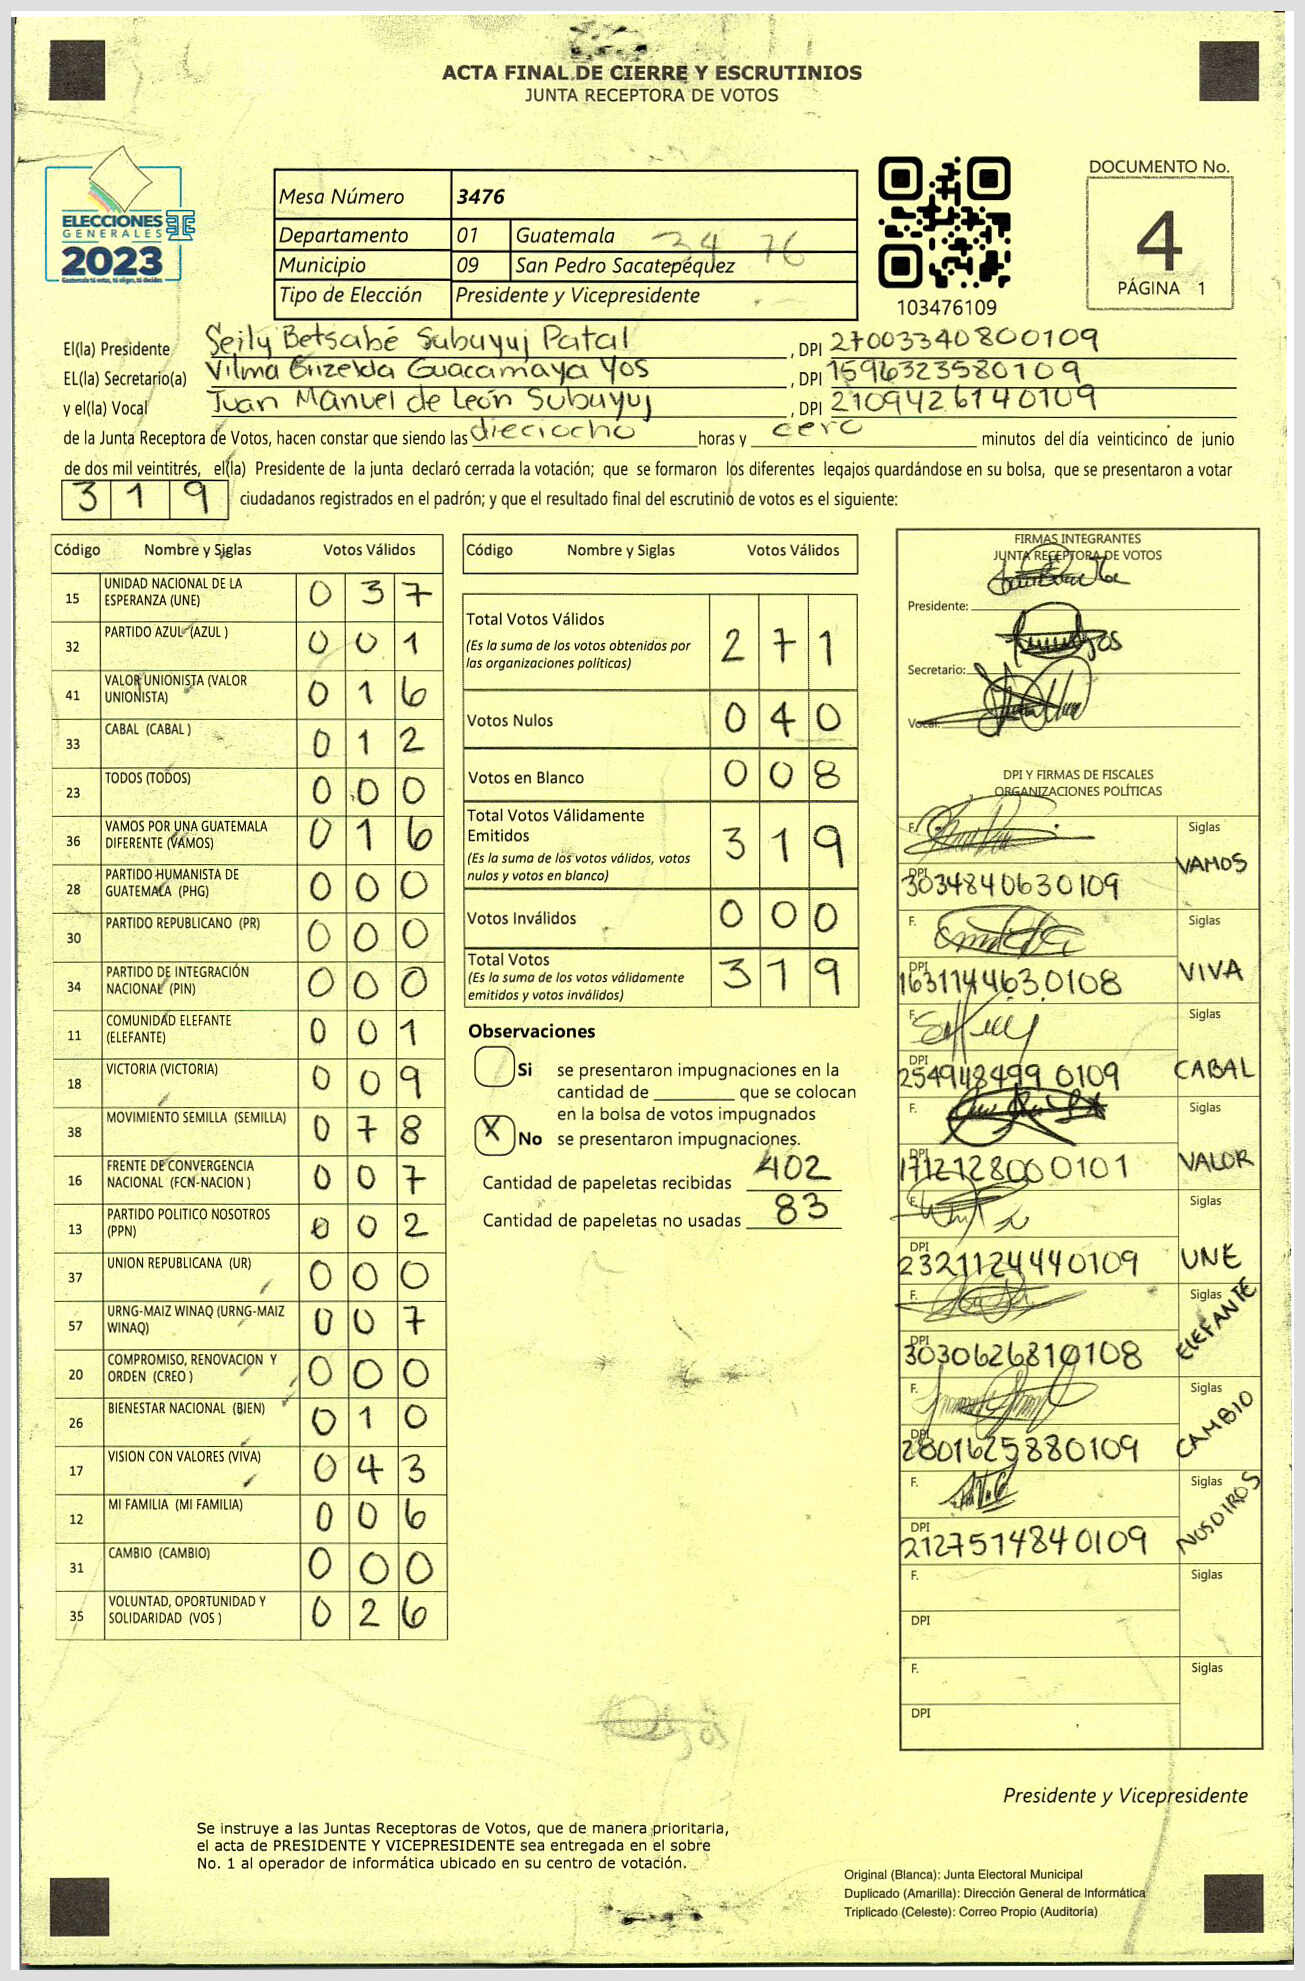 ACTA FINAL DE CIERRE Y ESCRUTINIOS
JUNTA RECEPTORA DE VOTOS
ELECCIONES
GENERALES
2023
Mesa Número 3476
Departamento 01 Guatemala 3476
Municipio 09 San Pedro Sacatepéquez
Tipo de Elección Presidente y Vicepresidente
103476109
DOCUMENTO No.
4
PÁGINA 1
El(la) Presidente Seily Betsabé Subuyuj Patal , DPI 2700334080109
EL(la) Secretario(a) Vilma Grizelda Guacamaya Yos , DPI 1596323580109
y el(la) Vocal Juan Manuel de León Subuyuj , DPI 2109426140109
de la Junta Receptora de Votos, hacen constar que siendo las dieciocho horas y cero minutos del día veinticinco de junio
de dos mil veintitrés, el(la) Presidente de la junta declaró cerrada la votación; que se formaron los diferentes legajos guardándose en su bolsa, que se presentaron a votar
319 ciudadanos registrados en el padrón; y que el resultado final del escrutinio de votos es el siguiente:
Código Nombre y Siglas Votos Válidos
15 UNIDAD NACIONAL DE LA ESPERANZA (UNE) 037
32 PARTIDO AZUL (AZUL ) 001
41 VALOR UNIONISTA (VALOR UNIONISTA) 016
33 CABAL (CABAL ) 012
23 TODOS (TODOS) 000
36 VAMOS POR UNA GUATEMALA DIFERENTE (VAMOS) 016
28 PARTIDO HUMANISTA DE GUATEMALA (PHG) 000
30 PARTIDO REPUBLICANO (PR) 000
34 PARTIDO DE INTEGRACIÓN NACIONAL (PIN) 000
11 COMUNIDAD ELEFANTE (ELEFANTE) 001
18 VICTORIA (VICTORIA) 009
38 MOVIMIENTO SEMILLA (SEMILLA) 078
16 FRENTE DE CONVERGENCIA NACIONAL (FCN-NACION ) 007
13 PARTIDO POLITICO NOSOTROS (PPN) 002
37 UNION REPUBLICANA (UR) 000
57 URNG-MAIZ WINAQ (URNG-MAIZ WINAQ) 007
20 COMPROMISO, RENOVACION Y ORDEN (CREO ) 000
26 BIENESTAR NACIONAL (BIEN) 010
17 VISION CON VALORES (VIVA) 043
12 MI FAMILIA (MI FAMILIA) 006
31 CAMBIO (CAMBIO) 000
35 VOLUNTAD, OPORTUNIDAD Y SOLIDARIDAD (VOS ) 026
Código Nombre y Siglas Votos Válidos
Total Votos Válidos 271
(Es la suma de los votos obtenidos por
las organizaciones políticas)
Votos Nulos 040
Votos en Blanco 008
Total Votos Válidamente
Emitidos 319
(Es la suma de los votos válidos, votos
nulos y votos en blanco)
Votos Inválidos 000
Total Votos 319
(Es la suma de los votos válidamente
emitidos y votos inválidos)
Observaciones
Si se presentaron impugnaciones en la
cantidad de ________ que se colocan
en la bolsa de votos impugnados
X No se presentaron impugnaciones.
Cantidad de papeletas recibidas 402
Cantidad de papeletas no usadas 83
FIRMAS INTEGRANTES
JUNTA RECEPTORA DE VOTOS
Presidente:
Secretario:
Vocal:
DPI Y FIRMAS DE FISCALES
ORGANIZACIONES POLÍTICAS
F. Siglas VAMOS
DPI 3034840630109
F. Siglas VIVA
DPI 1631144630108
F. Siglas CABAL
DPI 2549484990109
F. Siglas VALOR
DPI 1712128000101
F. Siglas UNE
DPI 2321124440109
F. Siglas ELEFANTE
DPI 3030626810108
F. Siglas CAMBIO
DPI 2801625880109
F. Siglas NOSOTROS
DPI 2127514840109
F. Siglas
DPI
F. Siglas
DPI
Presidente y Vicepresidente
Se instruye a las Juntas Receptoras de Votos, que de manera prioritaria,
el acta de PRESIDENTE Y VICEPRESIDENTE sea entregada en el sobre
No. 1 al operador de informática ubicado en su centro de votación.
Original (Blanca): Junta Electoral Municipal
Duplicado (Amarilla): Dirección General de Informática
Triplicado (Celeste): Correo Propio (Auditoría)